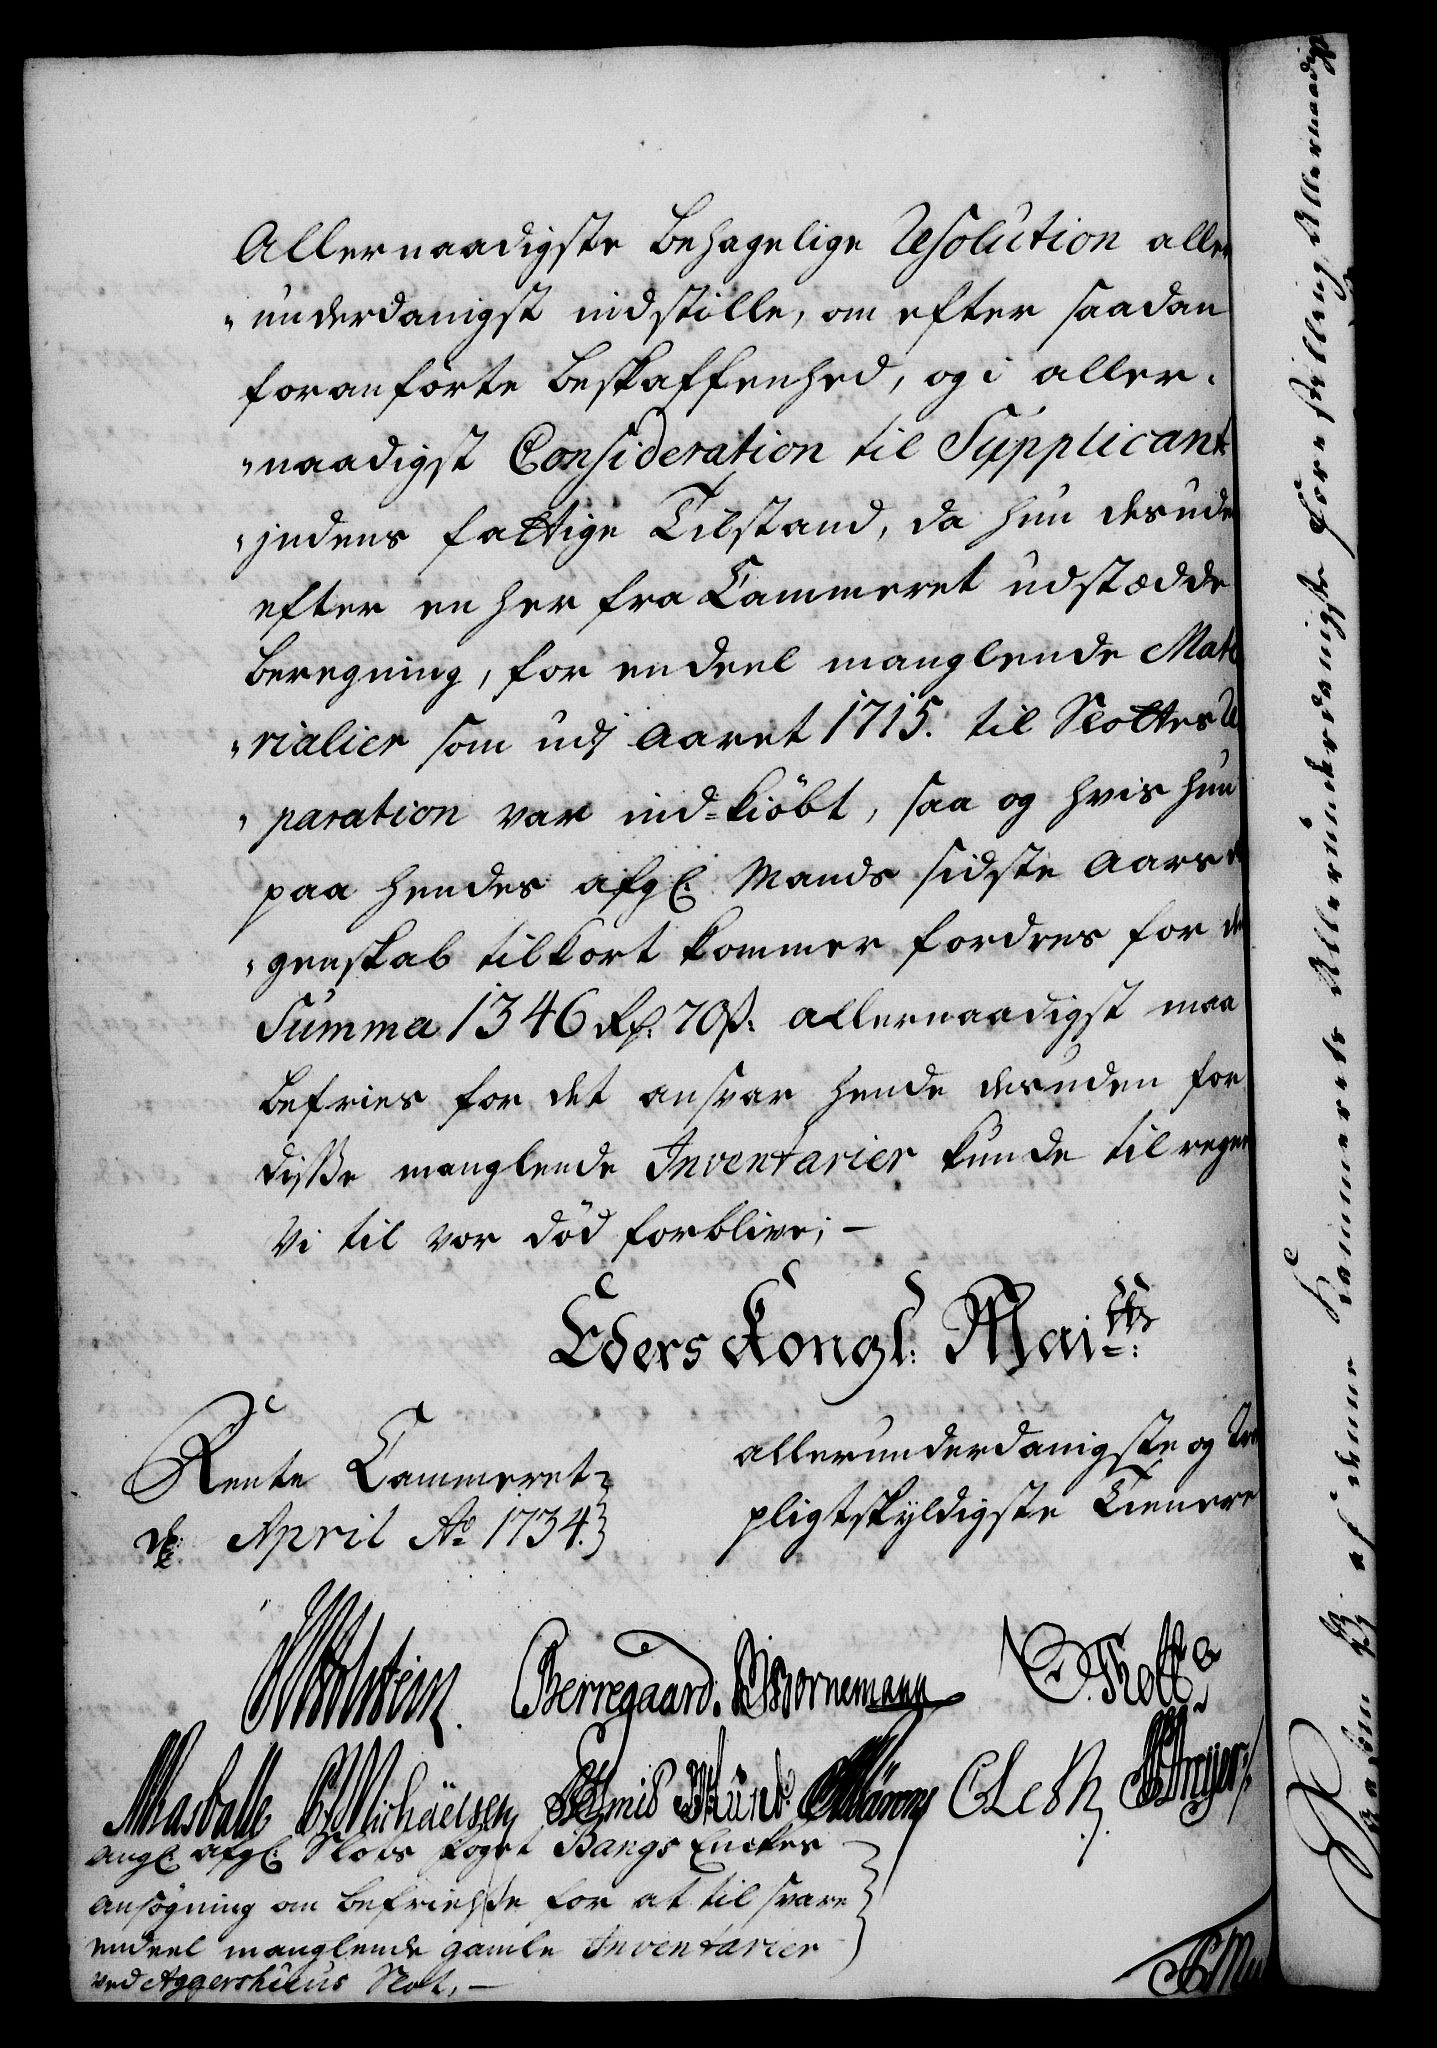 Allernaadigste behagelige Resolution aller
-underdanigst indstille, om efter saadan
foranførte beskaffenhed, og i aller-
-naadigst Consideration til Supplicant
-indens fattige Tilstand, da hun desuden
efter en her fra Cammeret udstædde
beregning, for endeel manglende Mate
-rialier som udj Aaret 1715. til Slottes Re
-paration var ind-kiöbt, saa og hvis hun
paa hendes afgl: Mands sidste Aars Re
-genskab tilkort kommer fordres for en
Summa 1346 Rd: 70 ß: allernaadigst maa
befries for det ansvar hende desuden for
disse manglende Inventarier kunde tilregnes
Vi til vor död forblive; —
Eders Kongl: Maitts:
Rente Cammeret
d: April Ao 1734.
allerunderdanigste og tro
pligtskyldigste Tienere
Holstein. Berregaard. Bornemann Thott
Kasballe Michäelsen Schmid Münt C Leth Dreyer
angl: afgl: Slots foget Bangs Enckes
ansögning om befrielse for at tilsvare
endeel manglende gamle Inventarier
ved Aggershuus Slot. —
af denne Cammerets Allerunderdanigste Forestilling Allernaadigst